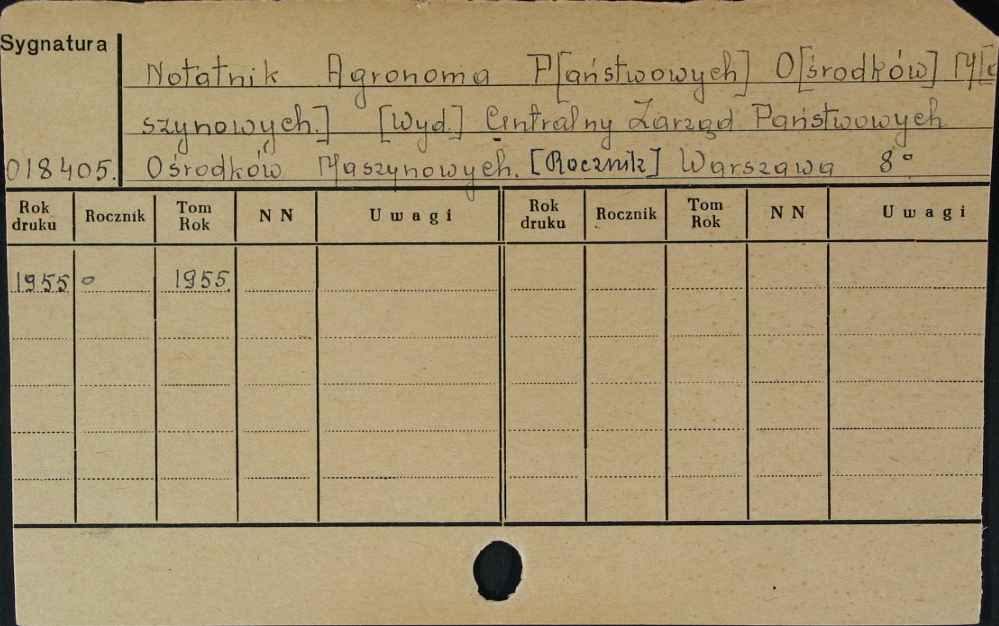 Sygnatura
Notatnik Agronoma P[aństwowych] O[środków] M[a
szynowych.] [Wyd.] Centralny Zarząd Państwowych
018405. Ośrodków Maszynowych. [Rocznik] Warszawa 8°
Rok druku Rocznik Tom Rok N N Uwagi Rok druku Rocznik Tom Rok N N Uwagi
1955 ° 1955